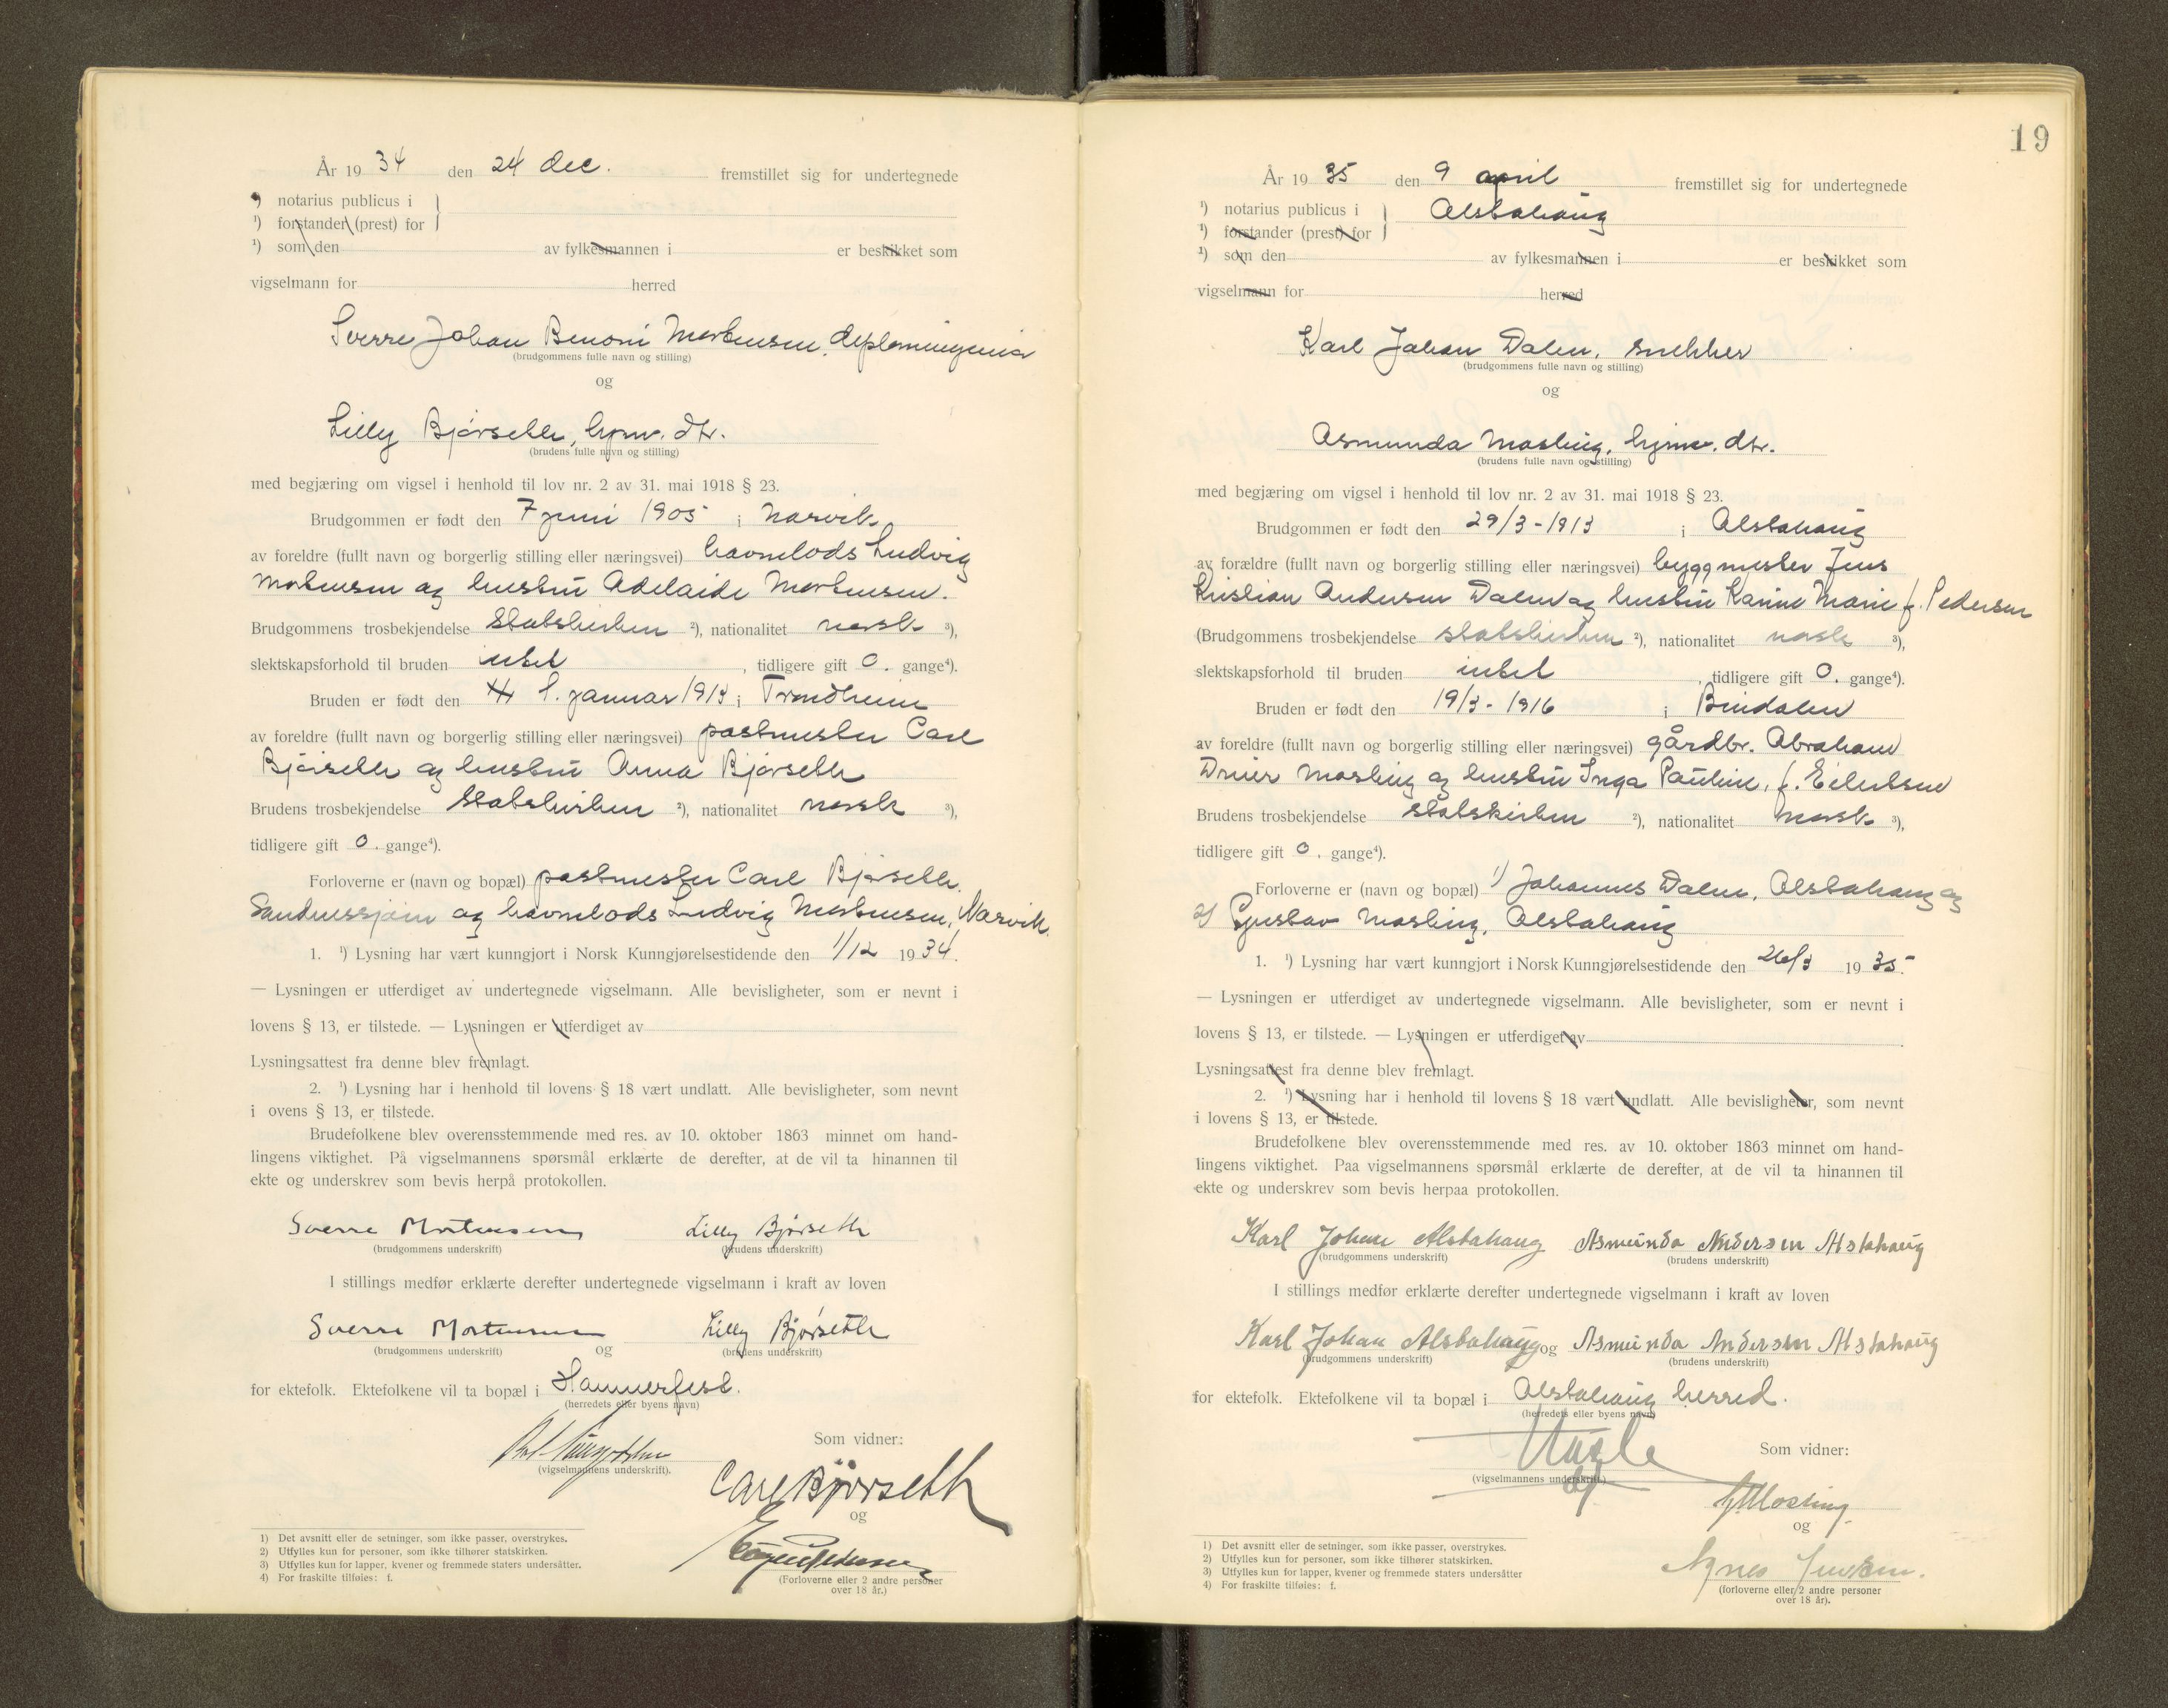 År 19 34 den 24 dec. fremstillet sig for undertegnede
¹) notarius publicus i
¹) forstander (prest) for
¹) som den av fylkesmannen i er beskikket som
vigselmann for herred
Sverre Johan Benoni Mortensen, diplomingeniør
(brudgommens fulle navn og stilling)
og
Lilly Bjørseth, hjmv. dtr.
(brudens fulle navn og stilling)
med begjæring om vigsel i henhold til lov nr. 2 av 31. mai 1918 § 23.
Brudgommen er født den 7 juni 1905 i Narvik
av foreldre (fullt navn og borgerlig stilling eller næringsvei) havnelods Ludvig
Mortensen og hustru Adelaide Mortensen.
Brudgommens trosbekjendelse Statskirken ²), nationalitet norsk ³),
slektskapsforhold til bruden intet , tidligere gift 0. gange⁴).
Bruden er født den 1. januar 1913 i Trondheim
av foreldre (fullt navn og borgerlig stilling eller næringsvei) postmester Carl
Bjørseth og hustru Anna Bjørseth
Brudens trosbekjendelse Statskirken ²), nationalitet norsk ³),
tidligere gift 0. gange⁴).
Forloverne er (navn og bopæl) postmester Carl Bjørseth,
Sandnessjøen og havnelods Ludvig Mortensen, Narvik.
1. ¹) Lysning har vært kunngjort i Norsk Kunngjørelsestidende den 1/12 1934.
— Lysningen er utferdiget av undertegnede vigselmann. Alle bevisligheter, som er nevnt i
lovens § 13, er tilstede. — Lysningen er utferdiget av
Lysningsattest fra denne blev fremlagt.
2. ¹) Lysning har i henhold til lovens § 18 vært undlatt. Alle bevisligheter, som nevnt
i ovens § 13, er tilstede.
Brudefolkene blev overensstemmende med res. av 10. oktober 1863 minnet om hand-
lingens viktighet. På vigselmannens spørsmål erklærte de derefter, at de vil ta hinannen til
ekte og underskrev som bevis herpå protokollen.
Sverre Mortensen Lilly Bjørseth
(brudgommens underskrift) (brudens underskrift)
I stillings medfør erklærte derefter undertegnede vigselmann i kraft av loven
Sverre Mortensen og Lilly Bjørseth
(brudgommens underskrift) (brudens underskrift)
for ektefolk. Ektefolkene vil ta bopæl i Hammerfest.
(herredets eller byens navn)
Som vidner:
(vigselmannens underskrift).
Carl Bjørseth
og
(Forloverne eller 2 andre personer
over 18 år.)
1) Det avsnitt eller de setninger, som ikke passer, overstrykes.
2) Utfylles kun for personer, som ikke tilhører statskirken.
3) Utfylles kun for lapper, kvener og fremmede staters undersåtter.
4) For fraskilte tilføies: f.
19
År 19 35 den 9 april fremstillet sig for undertegnede
¹) notarius publicus i Alstahaug
¹) forstander (prest) for
¹) som den av fylkesmannen i er beskikket som
vigselmann for herred
Karl Johan Dalen, snekker
(brudgommens fulle navn og stilling)
og
Asmunda Mosling, hjmv. dtr.
(brudens fulle navn og stilling)
med begjæring om vigsel i henhold til lov nr. 2 av 31. mai 1918 § 23.
Brudgommen er født den 29/3-1913 i Alstahaug
av forældre (fullt navn og borgerlig stilling eller næringsvei) byggmester Jens
Kristian Andersen Dalen og hustru Karine Marie f. Pedersen
(Brudgommens trosbekjendelse statskirken ²), nationalitet norsk ³),
slektskapsforhold til bruden intet , tidligere gift 0. gange⁴).
Bruden er født den 19/3-1916 i Bindalen
av foreldre (fullt navn og borgerlig stilling eller næringsvei) gårdbr. Abraham
Mosling og hustru Inga Pauline, f. Eilertsen
Brudens trosbekjendelse statskirken ²), nationalitet norsk ³),
tidligere gift 0. gange⁴).
Forloverne er (navn og bopæl) 1) Johannes Dalen, Alstahaug og
2) Gustav Mosling, Alstahaug
1. ¹) Lysning har vært kunngjort i Norsk Kunngjørelsestidende den 26/3 1935.
— Lysningen er utferdiget av undertegnede vigselmann. Alle bevisligheter, som er nevnt i
lovens § 13, er tilstede. — Lysningen er utferdiget av
Lysningsattest fra denne blev fremlagt.
2. ¹) Lysning har i henhold til lovens § 18 vært undlatt. Alle bevisligheter, som nevnt
i lovens § 13, er tilstede.
Brudefolkene blev overensstemmende med res. av 10. oktober 1863 minnet om hand-
lingens viktighet. Paa vigselmannens spørsmål erklærte de derefter, at de vil ta hinannen til
ekte og underskrev som bevis herpaa protokollen.
Karl Johan Alstahaug Asmunda Andersen Alstahaug
(brudgommens underskrift) (brudens underskrift)
I stillings medfør erklærte derefter undertegnede vigselmann i kraft av loven
Karl Johan Alstahaug og Asmunda Andersen Alstahaug
(brudgommens underskrift) (brudens underskrift)
for ektefolk. Ektefolkene vil ta bopæl i Alstahaug herred.
(herredets eller byens navn)
Som vidner:
(vigselmannens underskrift.)
G. Mosling.
og
Agnes Jensen.
(forloverne eller 2 andre personer
over 18 år).
1) Det avsnitt eller de setninger, som ikke passer, overstrykes.
2) Utfylles kun for personer, som ikke tilhører statskirken.
3) Utfylles kun for lapper, kvener og fremmede staters undersåtter
4) For fraskilte tilføies: f.